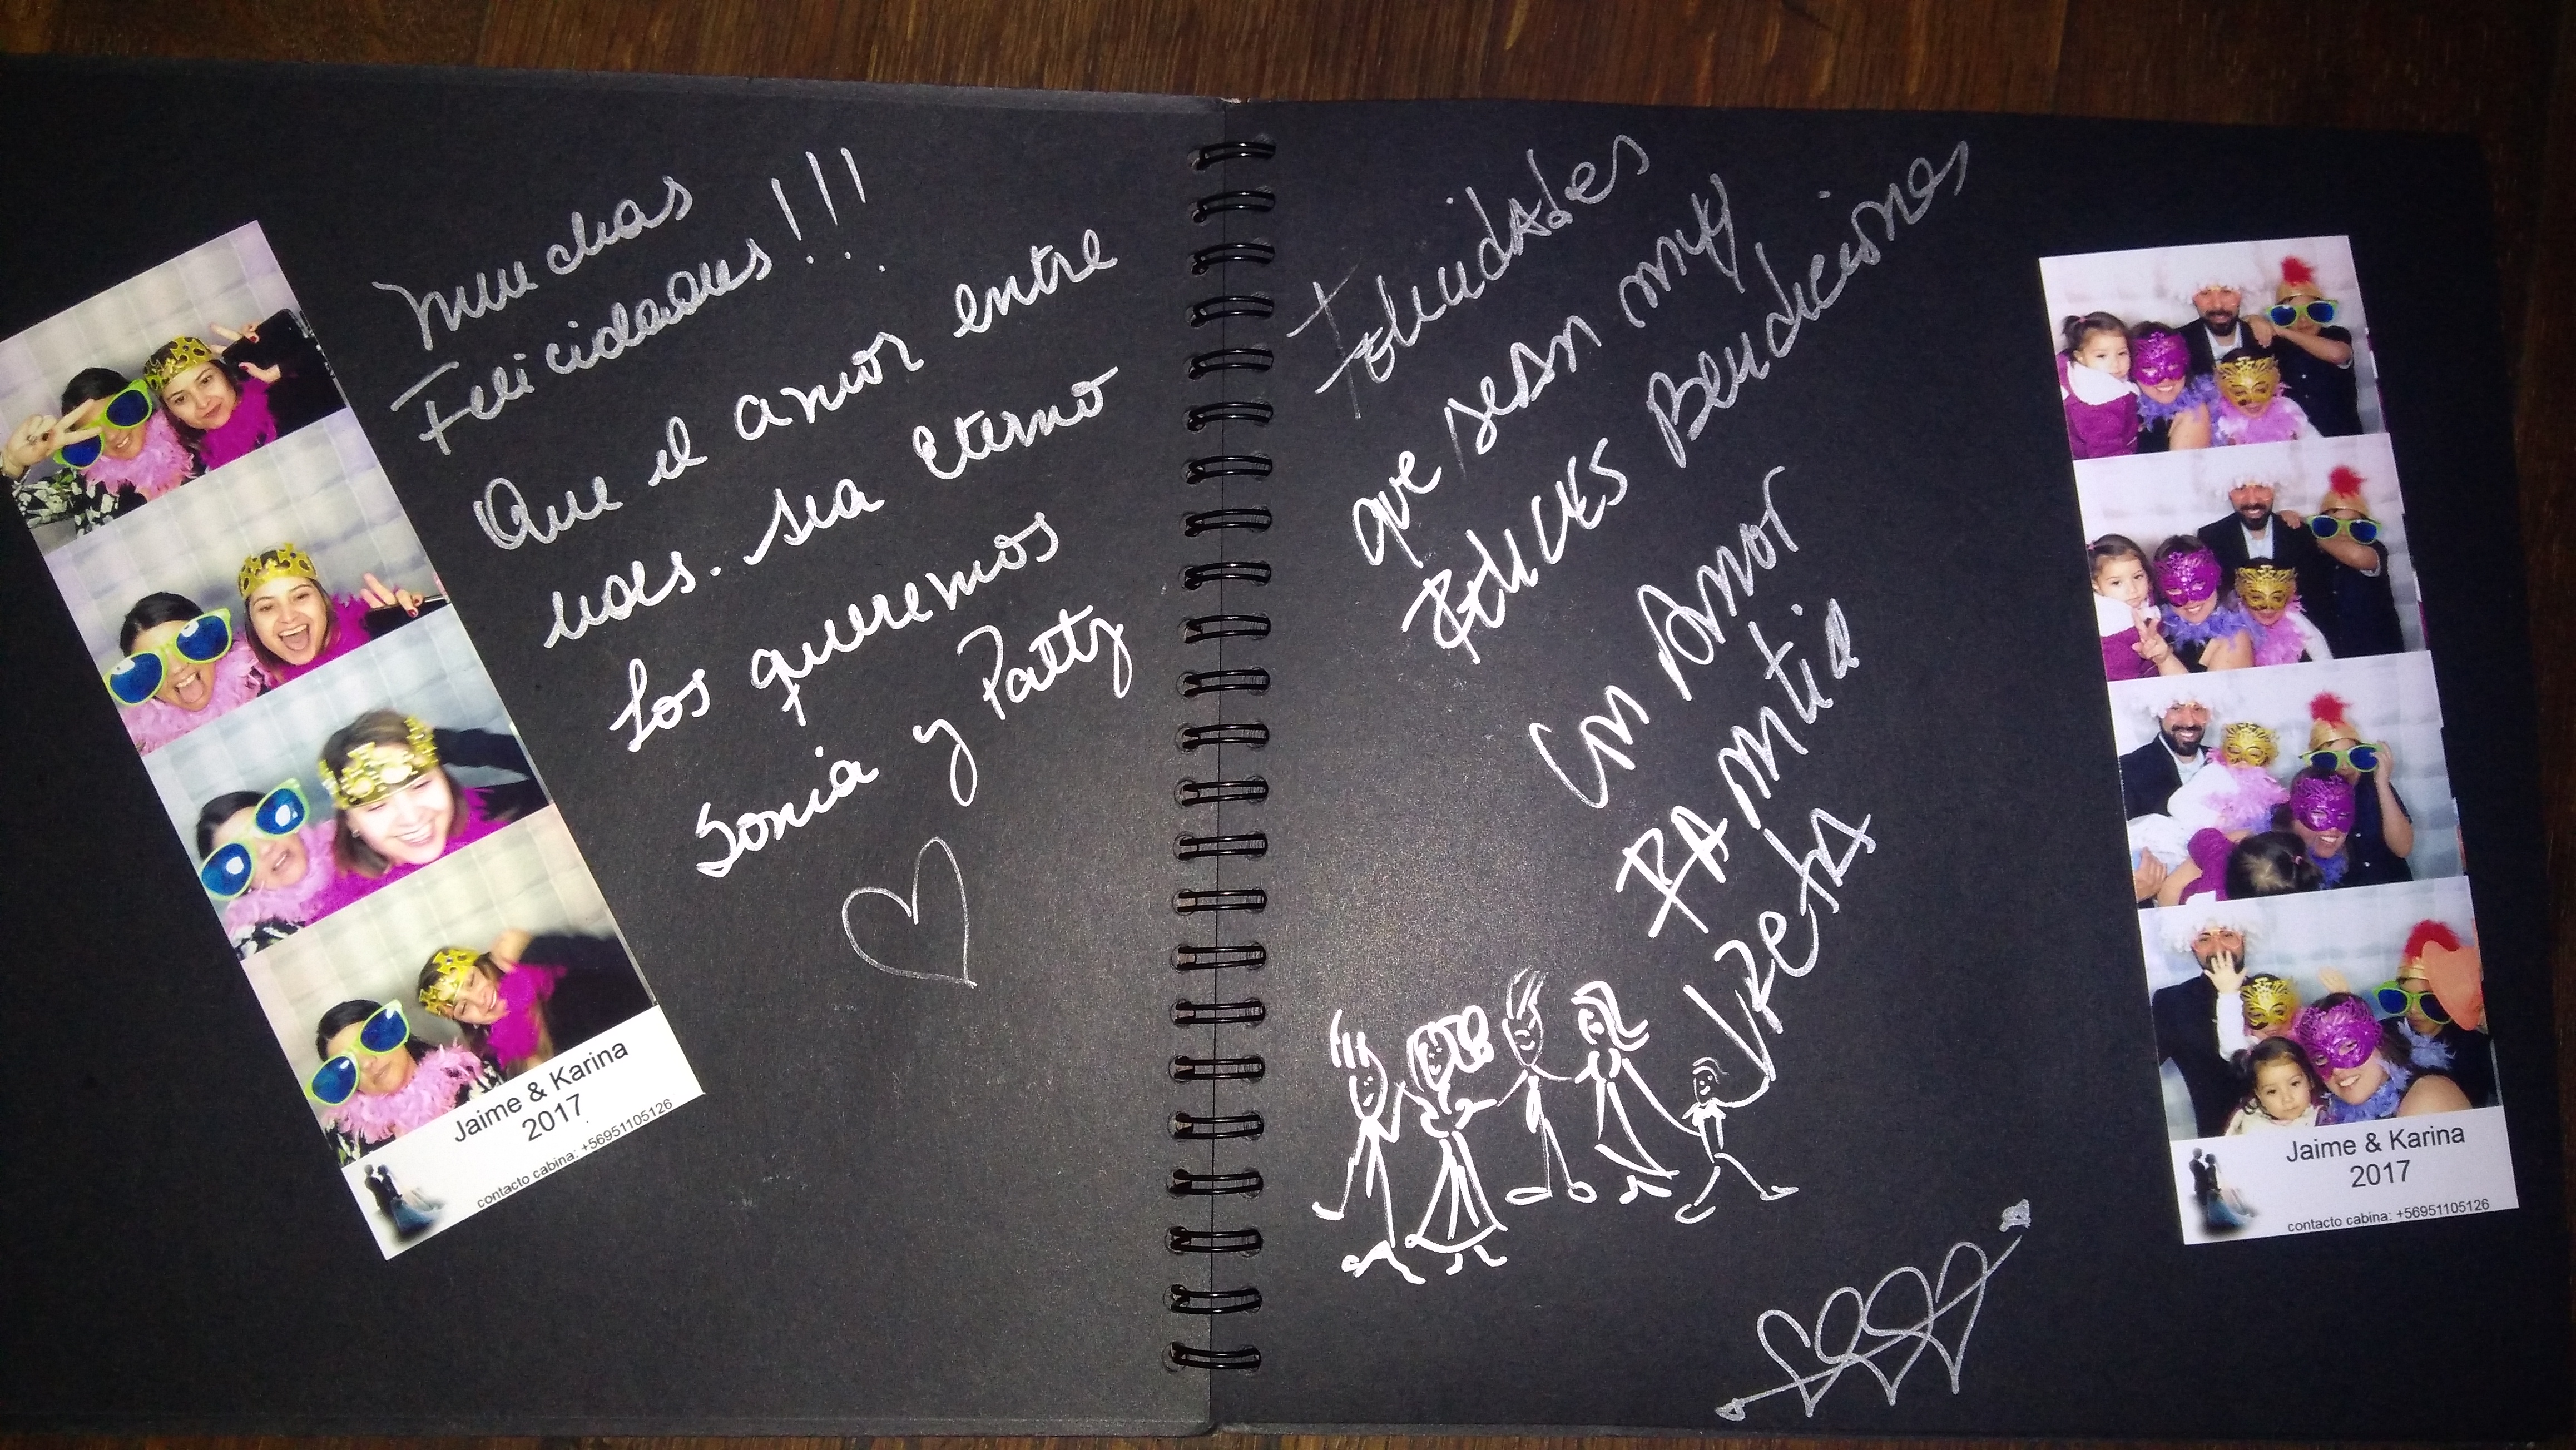 Muchas
Felicidades!!!
Que el amor entre
uds. sea Eterno
Los queremos
Sonia y Patty
Jaime & Karina
2017
contacto cabina: +56951105126
Felicidades
que sean muy
Felices Bendiciones
Con Amor
FAmilia
Jaime & Karina
2017
contacto cabina: +56951105126